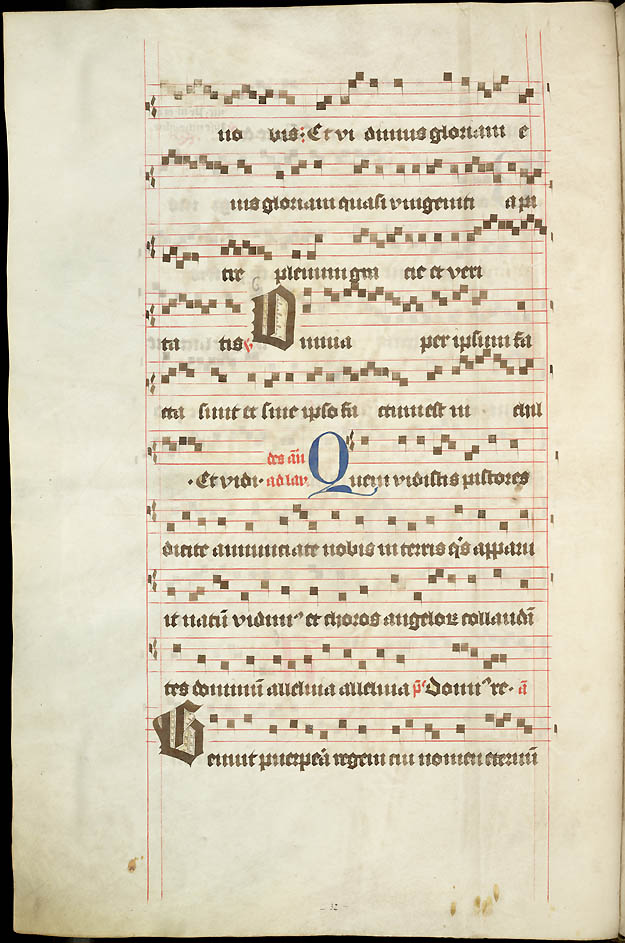 no bis: Et vi dimus gloriam e
ius gloriam quasi vnigeniti a pa
tre plenum gra cie et veri
ta tis ℣ Omnia per ipsum fa
cta sunt et sine ipso fa ctum est ni chil
· Et vidi · des añ ad lau. Quem vidistis pastores
dicite annunciate nobis in terris q̃s apparu
it natũ vidimꝰ et choros angeloꝝ collaudã
tes dominũ alleluia alleluia p̃s Dominꝰ re · ã
Genuit puerpeã regem cui nomen eternũ
32